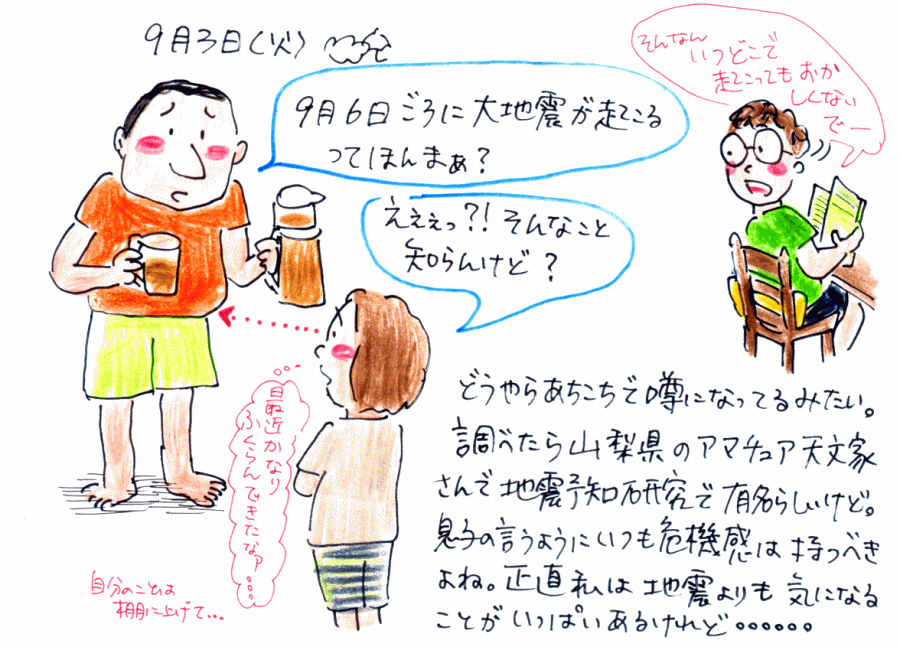 9月3日(火)
そんなん
いつどこで
起こっても おか
しくない
でー
9月6日ごろに大地震が起こる
ってほんまぁ?
えぇぇっ?!そんなこと
知らんけど?
最近かなり
ふくらんできたなァ……
自分のことは
棚に上げて…
どうやらあちこちで噂になってるみたい。
調べたら山梨県のアマチュア天文家
さんで地震予知研究で有名らしいけど。
息子の言うようにいつも危機感は持つべき
よね。正直私は地震よりも気になる
ことがいっぱいあるけれど・・・・・・